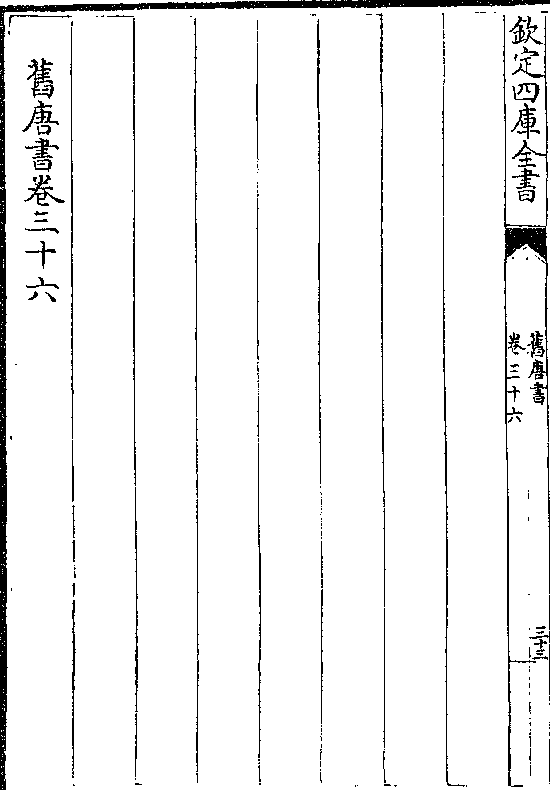 欽定四庫全書
舊唐書
卷三十六
三十三
舊唐書卷三十六